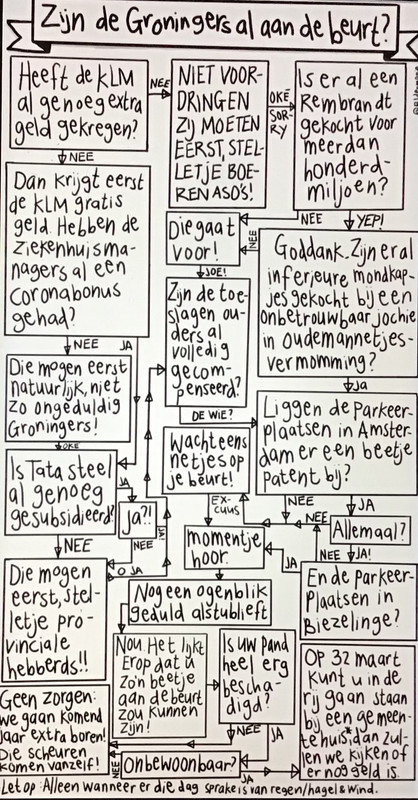 Zijn de Groningers al aan de beurt?
Heeft de KLM
al genoeg extra
geld gekregen?
NEE
NIET VOOR-
DRINGEN
ZIJ MOETEN
EERST, STEL-
LETJE BOE-
REN ASO'S!
OKÉ
SOR-
RY
Is er al een
Rembrandt
gekocht voor
meer dan
honderd
miljoen?
NEE
NEE
YEP!
Dan krijgt eerst
de KLM gratis
geld. Hebben de
ziekenhuisma-
nagers al een
coronabonus
gehad?
Die gaat
voor!
NEE
JOE!
Goddank. Zijn er al
inferieure mondkap-
jes gekocht bij een
onbetrouwbaar jochie
in oudemannetjes-
vermomming?
Zijn de toe-
slagen ou-
ders al
volledig
gecom-
penseerd?
NEE
JA
Ja
Die mogen eerst
natuurlijk, niet
zo ongeduldig
Groningers!
DE WIE?
Liggen de Parkeer-
plaatsen in Amster-
dam er een beetje
patent bij?
Wacht eens
netjes op
je beurt!
OKE
Is Tata steel
al genoeg
gesubsidieerd?
JA
Ja?!
EX-
CUUS
NEE
NEE
JA
Allemaal?
NEE
NEE
momentje
hoor.
JA
NEE
JA!
Die mogen
eerst, stel-
letje pro-
vinciale
hebberds!!
O JA
En de parkeer-
Plaatsen in
Biezelinge?
Nog een ogenblik
geduld alstublieft
Nou. Het lijkt
Erop dat u
zo'n beetje
aan de beurt
zou kunnen
zijn!
Is uw pand
heel erg
bescha-
digd?
Op 32 maart
kunt u in de
rij gaan staan
bij een gemeen-
tehuis*, dan zul-
len we kijken of
er nog geld is.
Geen zorgen:
we gaan komend
jaar extra boren!
Die scheuren
komen vanzelf!
NEE
JA
NEE
Onbewoonbaar?
JA
Let op: Alleen wanneer er die dag sprake is van regen/hagel & wind.